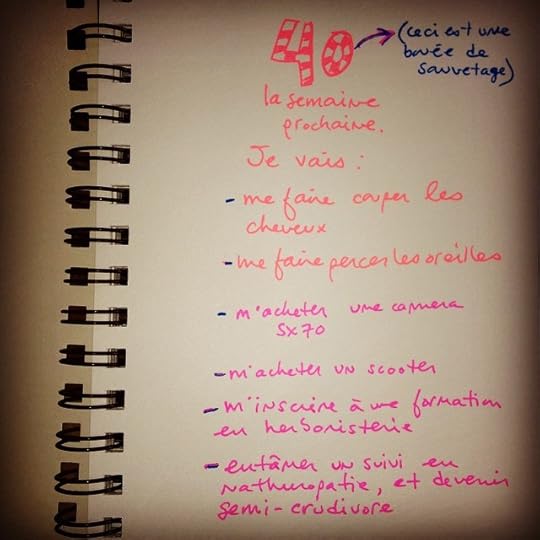 40
(ceci est une
bouée de
sauvetage)
la semaine
prochaine.
Je vais :
- me faire couper les
cheveux
- me faire percer les oreilles
- m'acheter une camera
SX70
- m'acheter un scooter
- m'inscrire à une formation
en herboristerie
- entâmer un suivi en
nathuropatie, et devenir
semi-crudivore